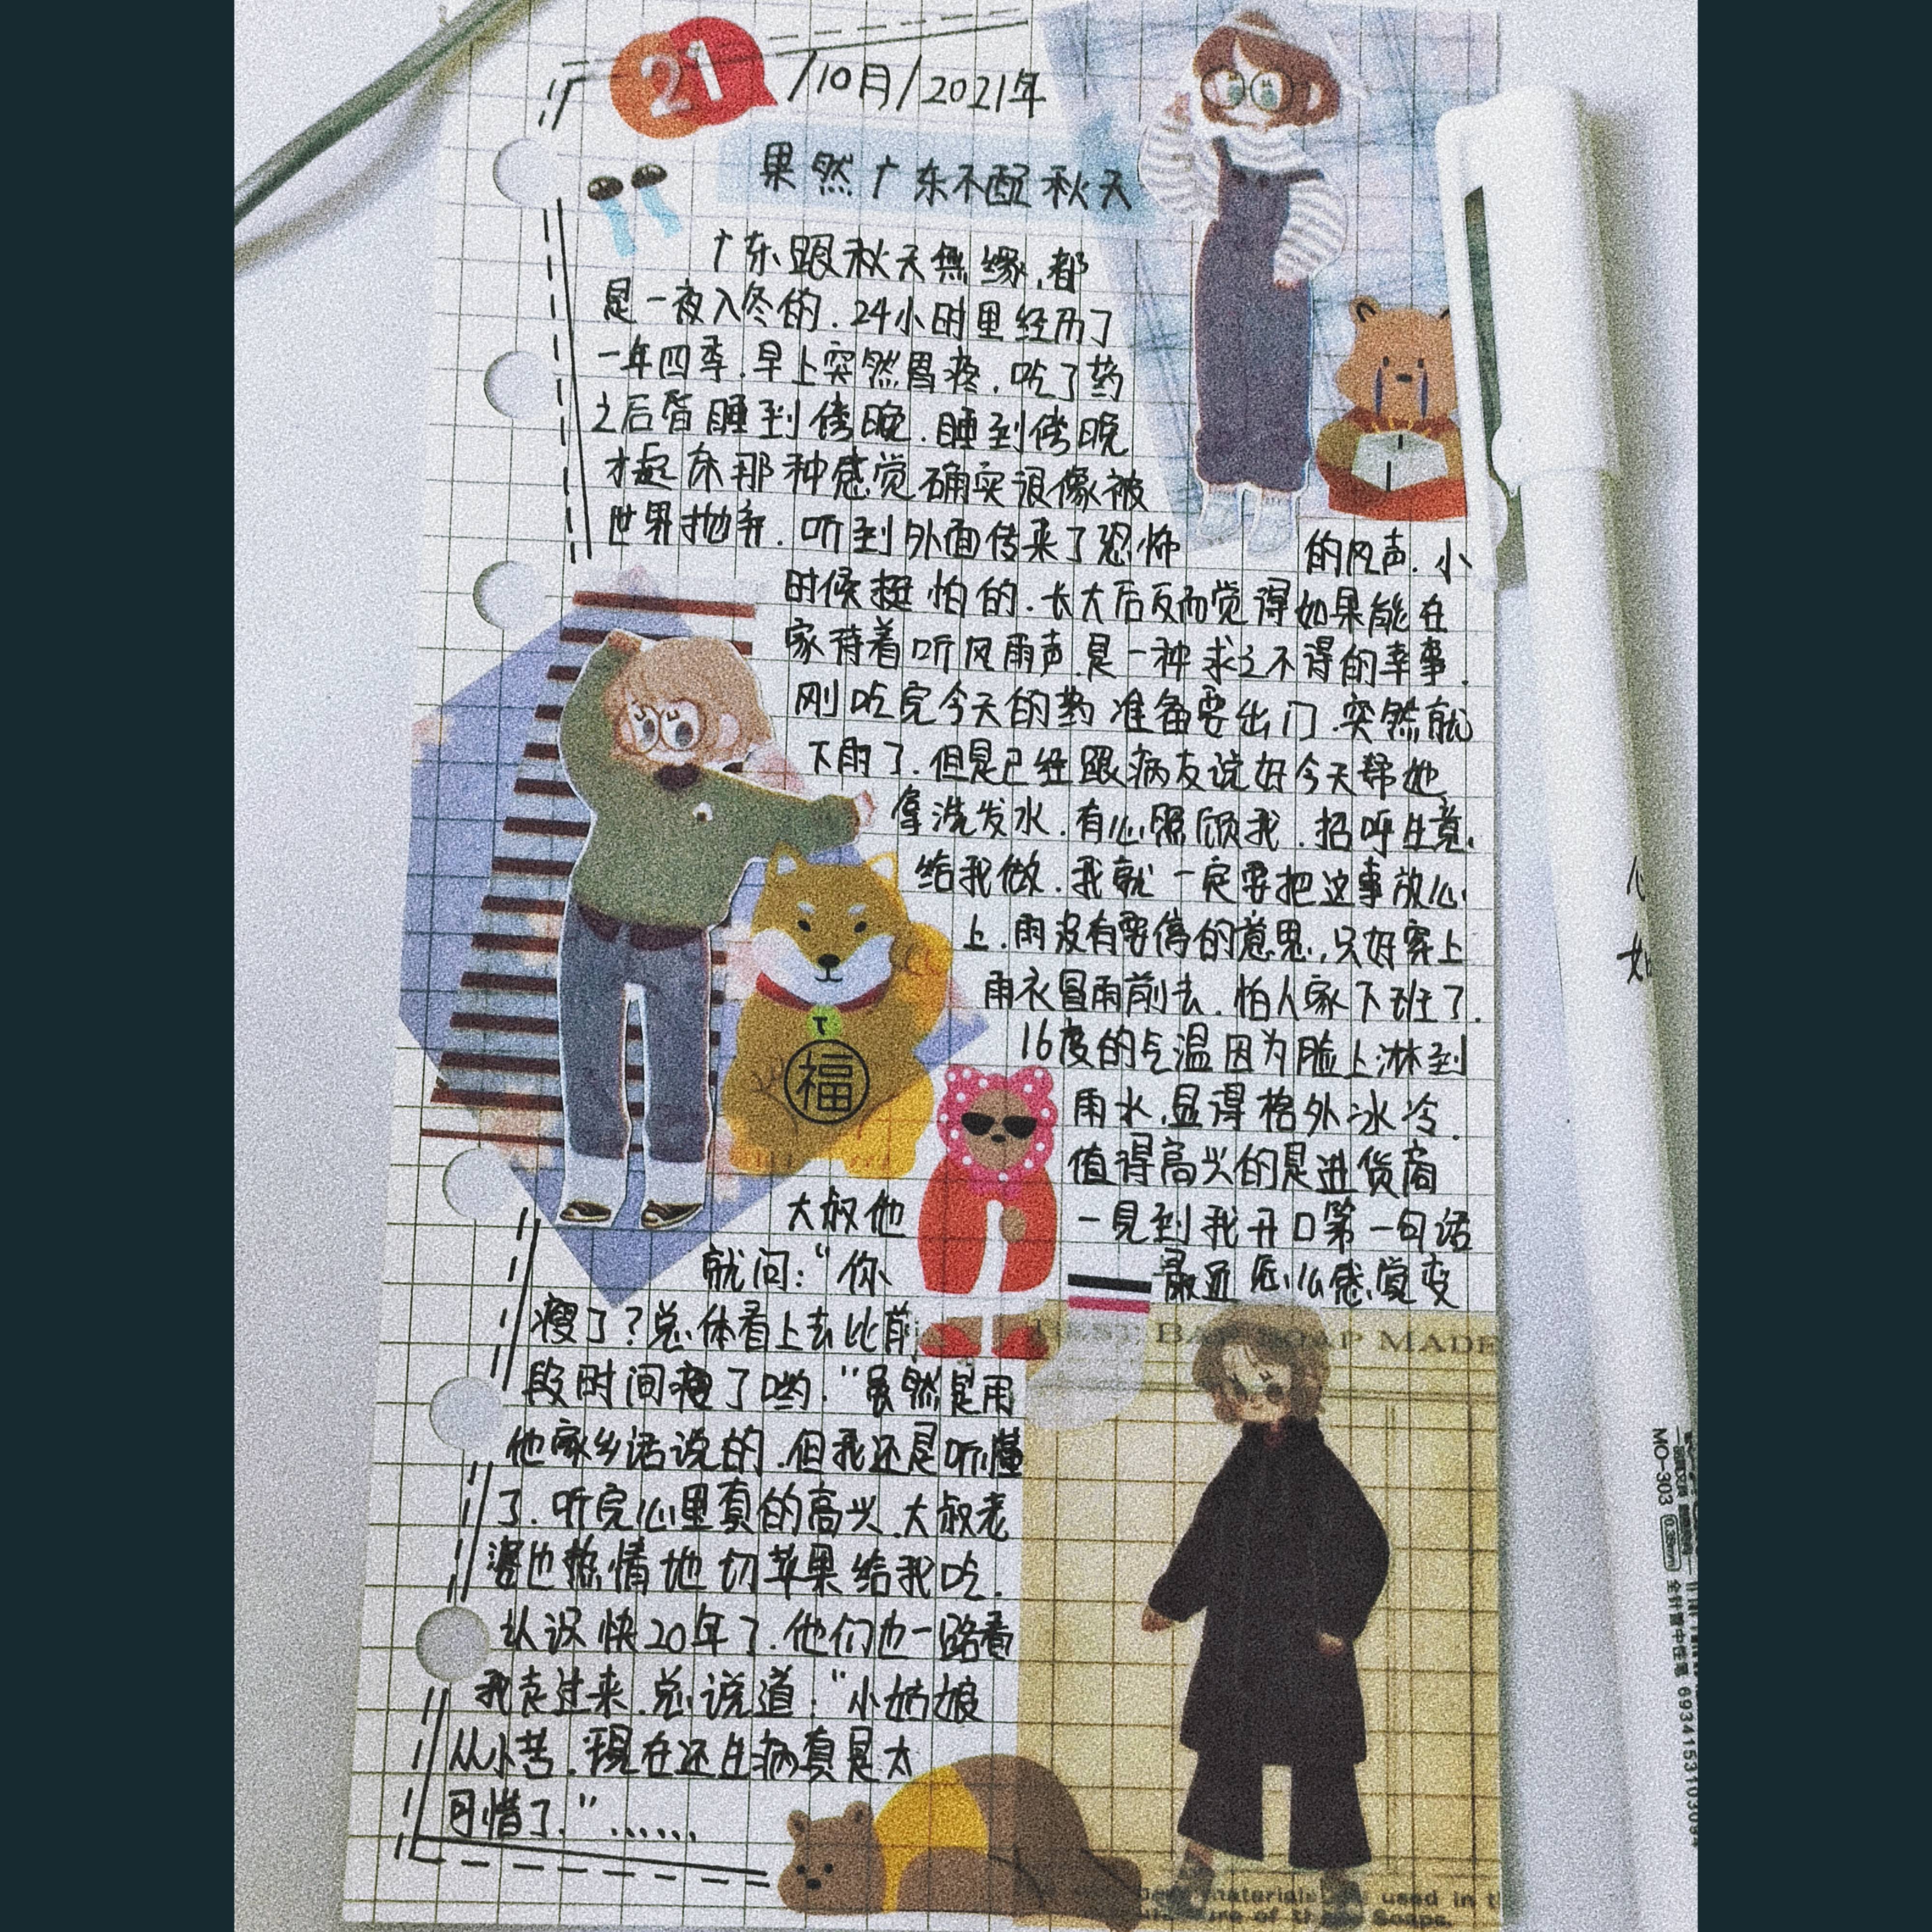 21/10月/2021年
果然广东不配秋天
广东跟秋天無缘,都
是一夜入冬的.24小时里经历了
一年四季.早上突然胃疼.吃了药
之后昏睡到傍晚.睡到傍晚
才起床那种感觉确实很像被
世界抛弃.听到外面传来了恐怖的风声.小
时候挺怕的.长大后反而觉得如果能在
家待着听风雨声.是一种求之不得的幸事.
刚吃完今天的药准备要出门.突然就
下雨了.但是已经跟病友说好今天帮她
拿洗发水.有心照顾我.招呼生意.
给我做.我就一定要把这事放心
上.雨没有要停的意思,只好穿上
雨衣冒雨前去.怕人家下班了.
16度的气温因为脸上淋到
雨水.显得格外冰冷.
福
值得高兴的是进货商
大叔他一見到我开口第一句话
就问:"你最近怎么感觉变
瘦了?总体看上去比前
段时间瘦了哟."虽然是用
他家乡话说的.但我还是听懂
了.听完心里真的高兴.大叔老
婆也热情地切苹果给我吃.
认识快20年了.他们也一路看
我走过来.总说道:"小姑娘
从小苦.現在还生病真是太
可惜了."......
BAR SOAP MADE
materials
used in th
of these Soaps.
MO-303 0.35mm 全针管中性笔 693411531030